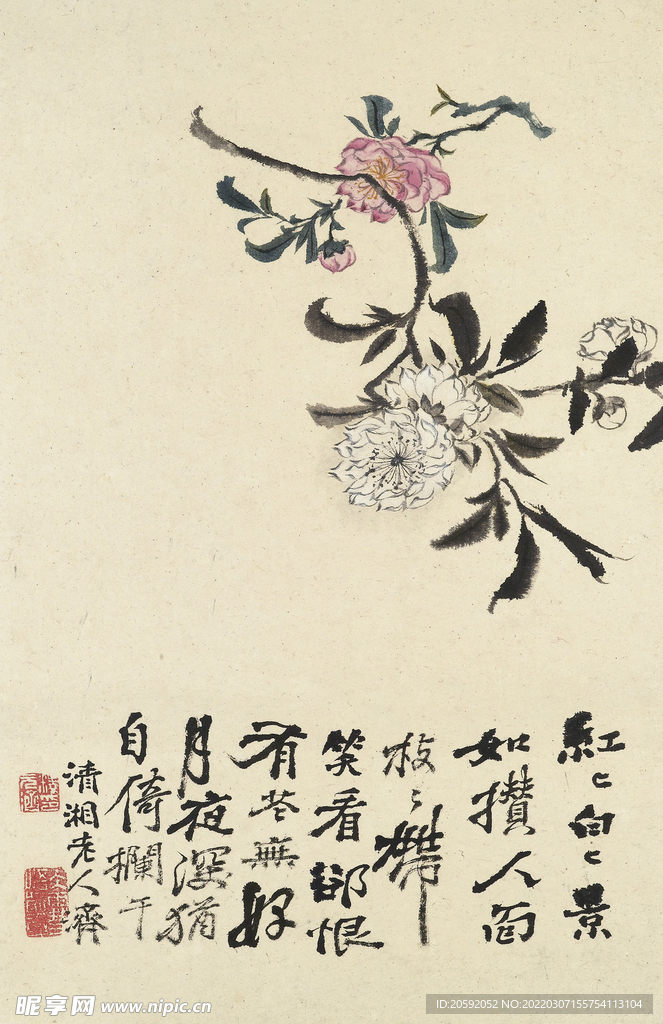 紅〻白〻景
如攢人面
枝〻帶
笑看卻恨
有花無好
月夜深猶
自倚攔干
清湘老人濟
昵享网 www.nipic.cn
ID:20592052 NO:20220307155754113104